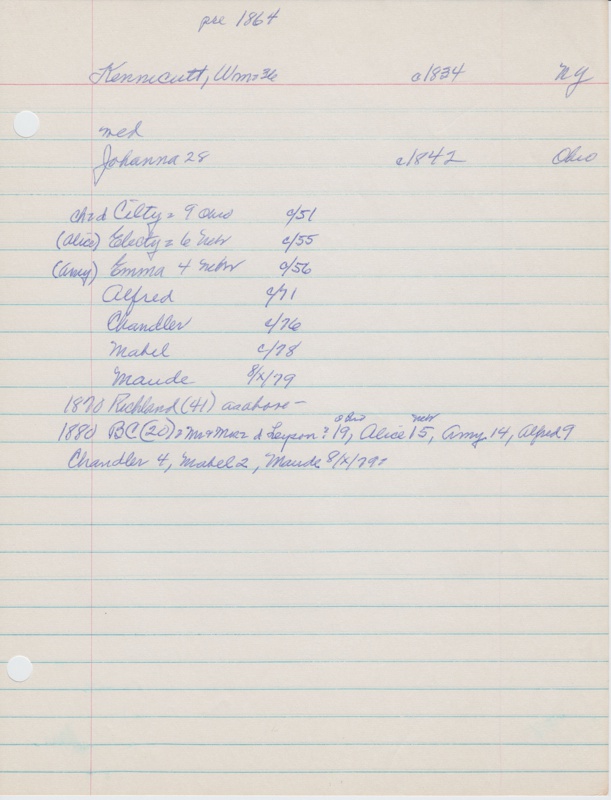 pre 1864
Kennicutt, Wm=36 c1834 NY
med
Johanna 28 c1842 Ohio
chd Cilty= 9 Ohio c/51
(Alice) Electy= 6 Nebr c/55
(Amy) Emma 4 Nebr c/56
Alfred c/71
Chandler c/76
Mabel c/78
Maude 8/x/79
1870 Richland (41) as above-
1880 BC (20)= Mr & Mrs d 19, Ohio Alice 15, Nebr Amy 14, Alfred 9
Chandler 4, Mabel 2, Maude 8/x/79=